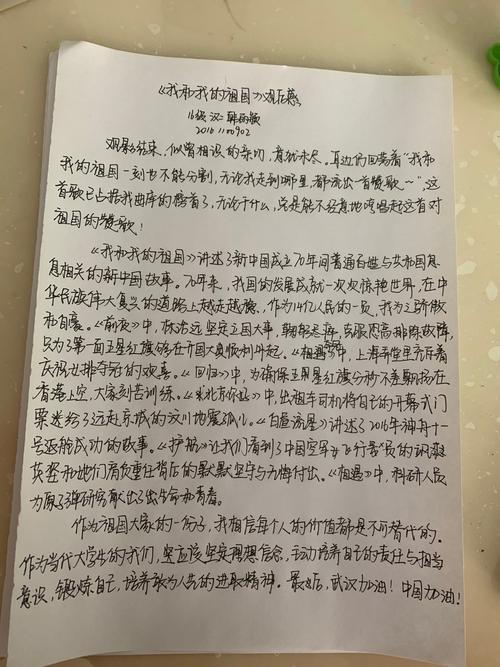 《我和我的祖国》观后感
16级 汉二 韩雨歌
2016110902
观影结束，似曾相识的亲切，意犹未尽。耳边仍回荡着“我和
我的祖国一刻也不能分割，无论我走到哪里，都流出一首赞歌~”，这
首歌已占据我曲库的榜首了，无论干什么，总是能不经意地哼唱起这首对
祖国的赞歌！
《我和我的祖国》讲述了新中国成立70年间普通百姓与共和国息
息相关的新中国故事。70年来，我国的发展成就一次次惊艳世界，在中
华民族伟大复兴的道路上越走越稳，作为14亿人民的一员，我为之骄傲
和自豪。《前夜》中，林治远坚定立国大事，克服恐高排除故障，
只为了第一面五星红旗能够在开国大典顺利升起。《相遇》中，上海弄堂里充斥着
庆祝女排夺冠的欢喜。《回归》中，为确保五星红旗分秒不差飘扬在
香港上空，大家刻苦训练。《北京你好》中，出租车司机将自己的开幕式门
票送给了远赴京城的汶川地震孤儿。《白昼流星》讲述了2016年神舟十一
号返航成功的故事。《护航》让我们看到了中国空军女飞行员的飒爽
英姿和她们肩负重任背后的默默坚守与无悔付出。《相遇》中，科研人员
为原子弹研究献出了生命和青春。
作为祖国大家的一份子，我相信每个人的价值都是不可替代的。
作为当代大学生的我们，更应该坚定理想信念，主动培养自己的责任与担当
意识，锻炼自己，培养敢为人先的进取精神。最后，武汉加油！中国加油！